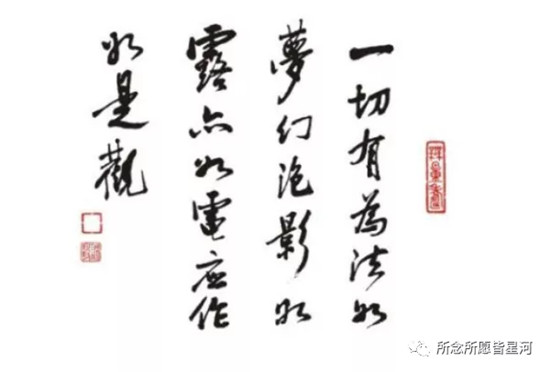 一切有為法如
夢幻泡影如
露亦如電應作
如是觀
所念所愿皆星河